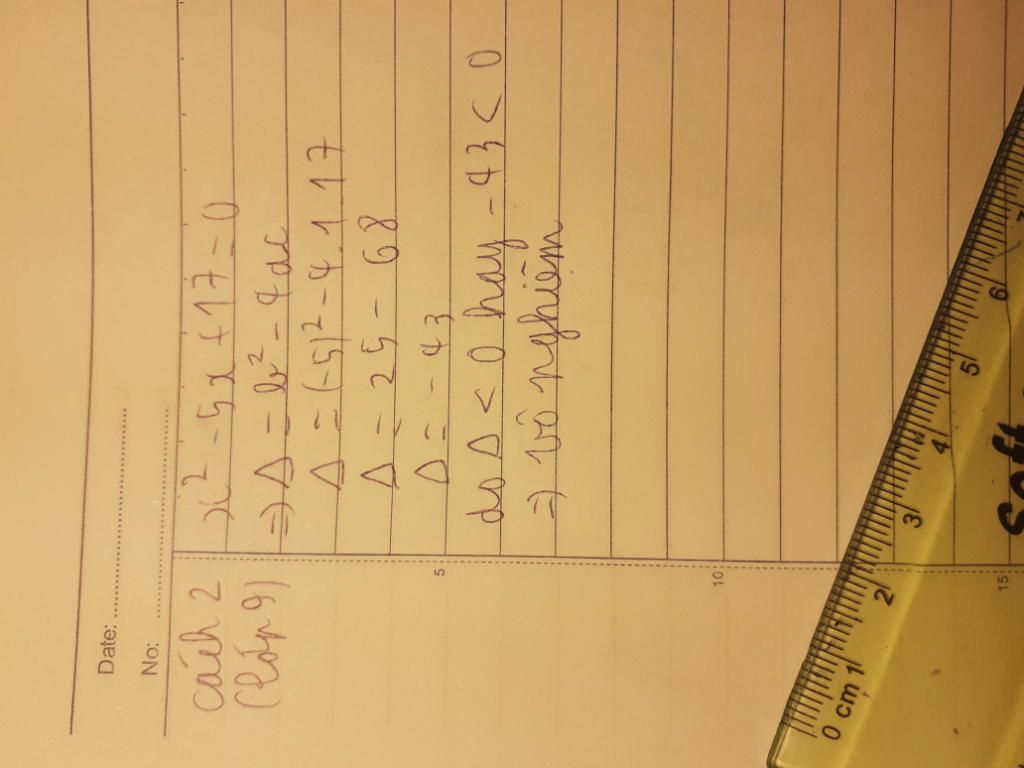 Date:
No:
cách 2
(lớp 9)
x² - 5x + 17 = 0
=> Δ = b² - 4ac
Δ = (-5)² - 4.1.17
Δ = 25 - 68
Δ = - 43
do Δ < 0 hay - 43 < 0
=> vô nghiệm
5
10
15
0 cm 1 2 3 4 5 6 7
Soft